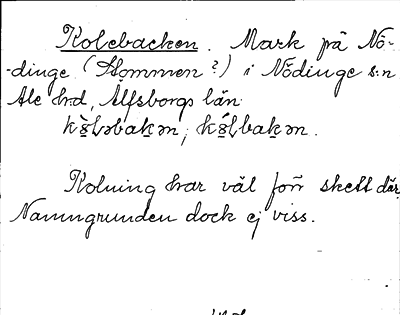 Kolebacken. Mark på Nö-
-dinge (Stommen?) i Nödinge s:n
Ale hrd, Älfsborgs län.
Kolning har väl förr skett där.
Namngrunden dock ej viss.